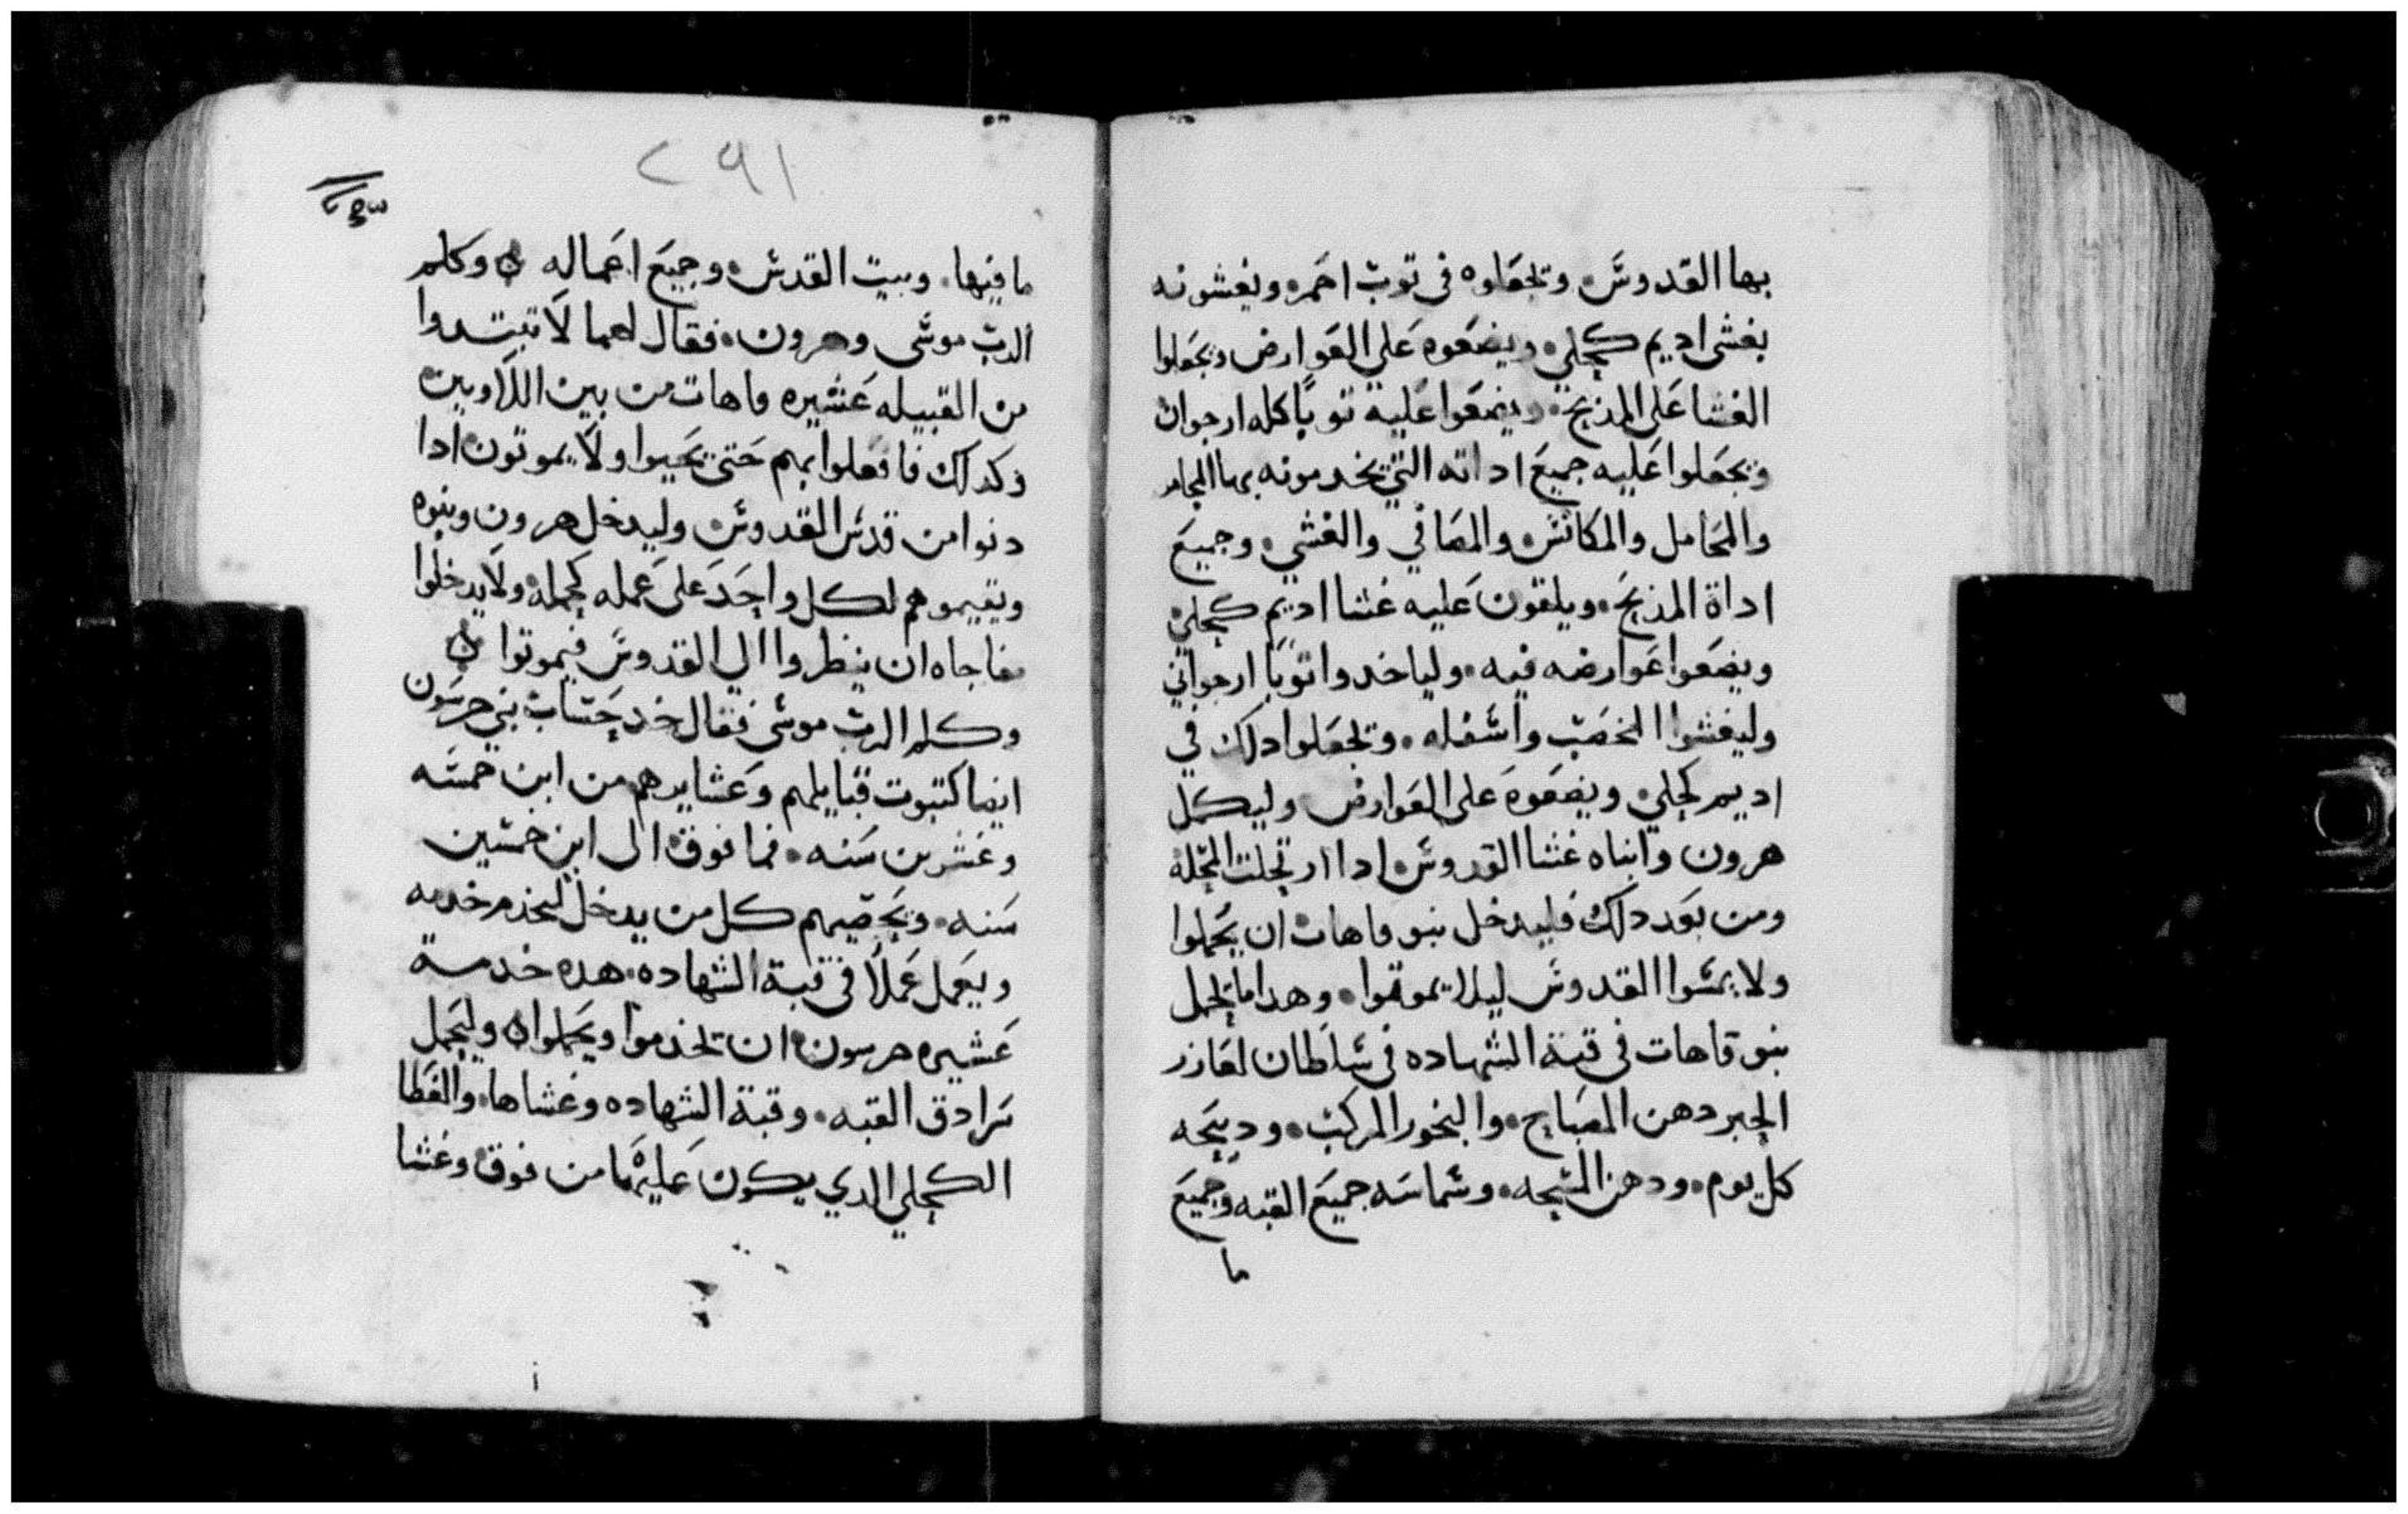 بها القدوس وتجعلوه في توب احمر ويغشونه
بغشى اديم كحلي ويضعوه على العوارض وتجعلوا
الغشا على المذبح ويضعوا عليه توبًا كله ارجوان
وتجعلوا عليه جميع اداته التي يخدمونه بها المجامر
والمحامل والمكانس والمصافي والغشي وجميع
اداة المذبح ويلقون عليه غشا اديم كحلي
ويضعوا عوارضه فيه وليا خدوا توبًا ارجواني
وليغشوا المخضب واسفله وتجعلوا دلك في
اديم كحلي ويضعوه على العوارض وليكمل
هرون وابناه غشا القدوس ادا ارتحلت المحله
ومن بعد دلك فليدخل بنو قاهات ان يحملوا
ولا يمسوا القدوس ليلا يموتوا وهدا ما تحمل
بنو قاهات في قبة الشهاده في سلطان لعازر
الحبر دهن المصباح والبخور المركب ودبيحه
كل يوم ودهن المسحه وشماسه جميع القبه وجميع
ما
٢٩١
ما فيها وبيت القدس وجميع اعماله وكلم
الرب موسى وهرون فقال لهما لا تبتدوا
من القبيله عشيره قاهات من بين اللاويين
وكدلك فافعلوا بهم حتى يحيوا ولا يموتون ادا
دنوا من قدس القدوس وليدخل هرون وبنوه
ويقيموهم لكل واحد على عمله كحمله ولا يدخلوا
مفاجاه ان ينظروا الي القدوس فيموتوا
وكلم الرب موسى فقال خد حساب بني جرسون
ايضا كتبوت قبايلهم وعشايرهم من ابن خمسه
وعشرين سنه فما فوق الى ابن خمسين
سنه وتحصيهم كل من يدخل ليخدم خدمه
ويعمل عملاً في قبة الشهاده هده خدمة
عشيره جرسون ان تخدموا ويحملوا وليحمل
سرادق القبه وقبة الشهاده وغشاها والغطا
الكحلي الدي يكون عليها من فوق وغشا